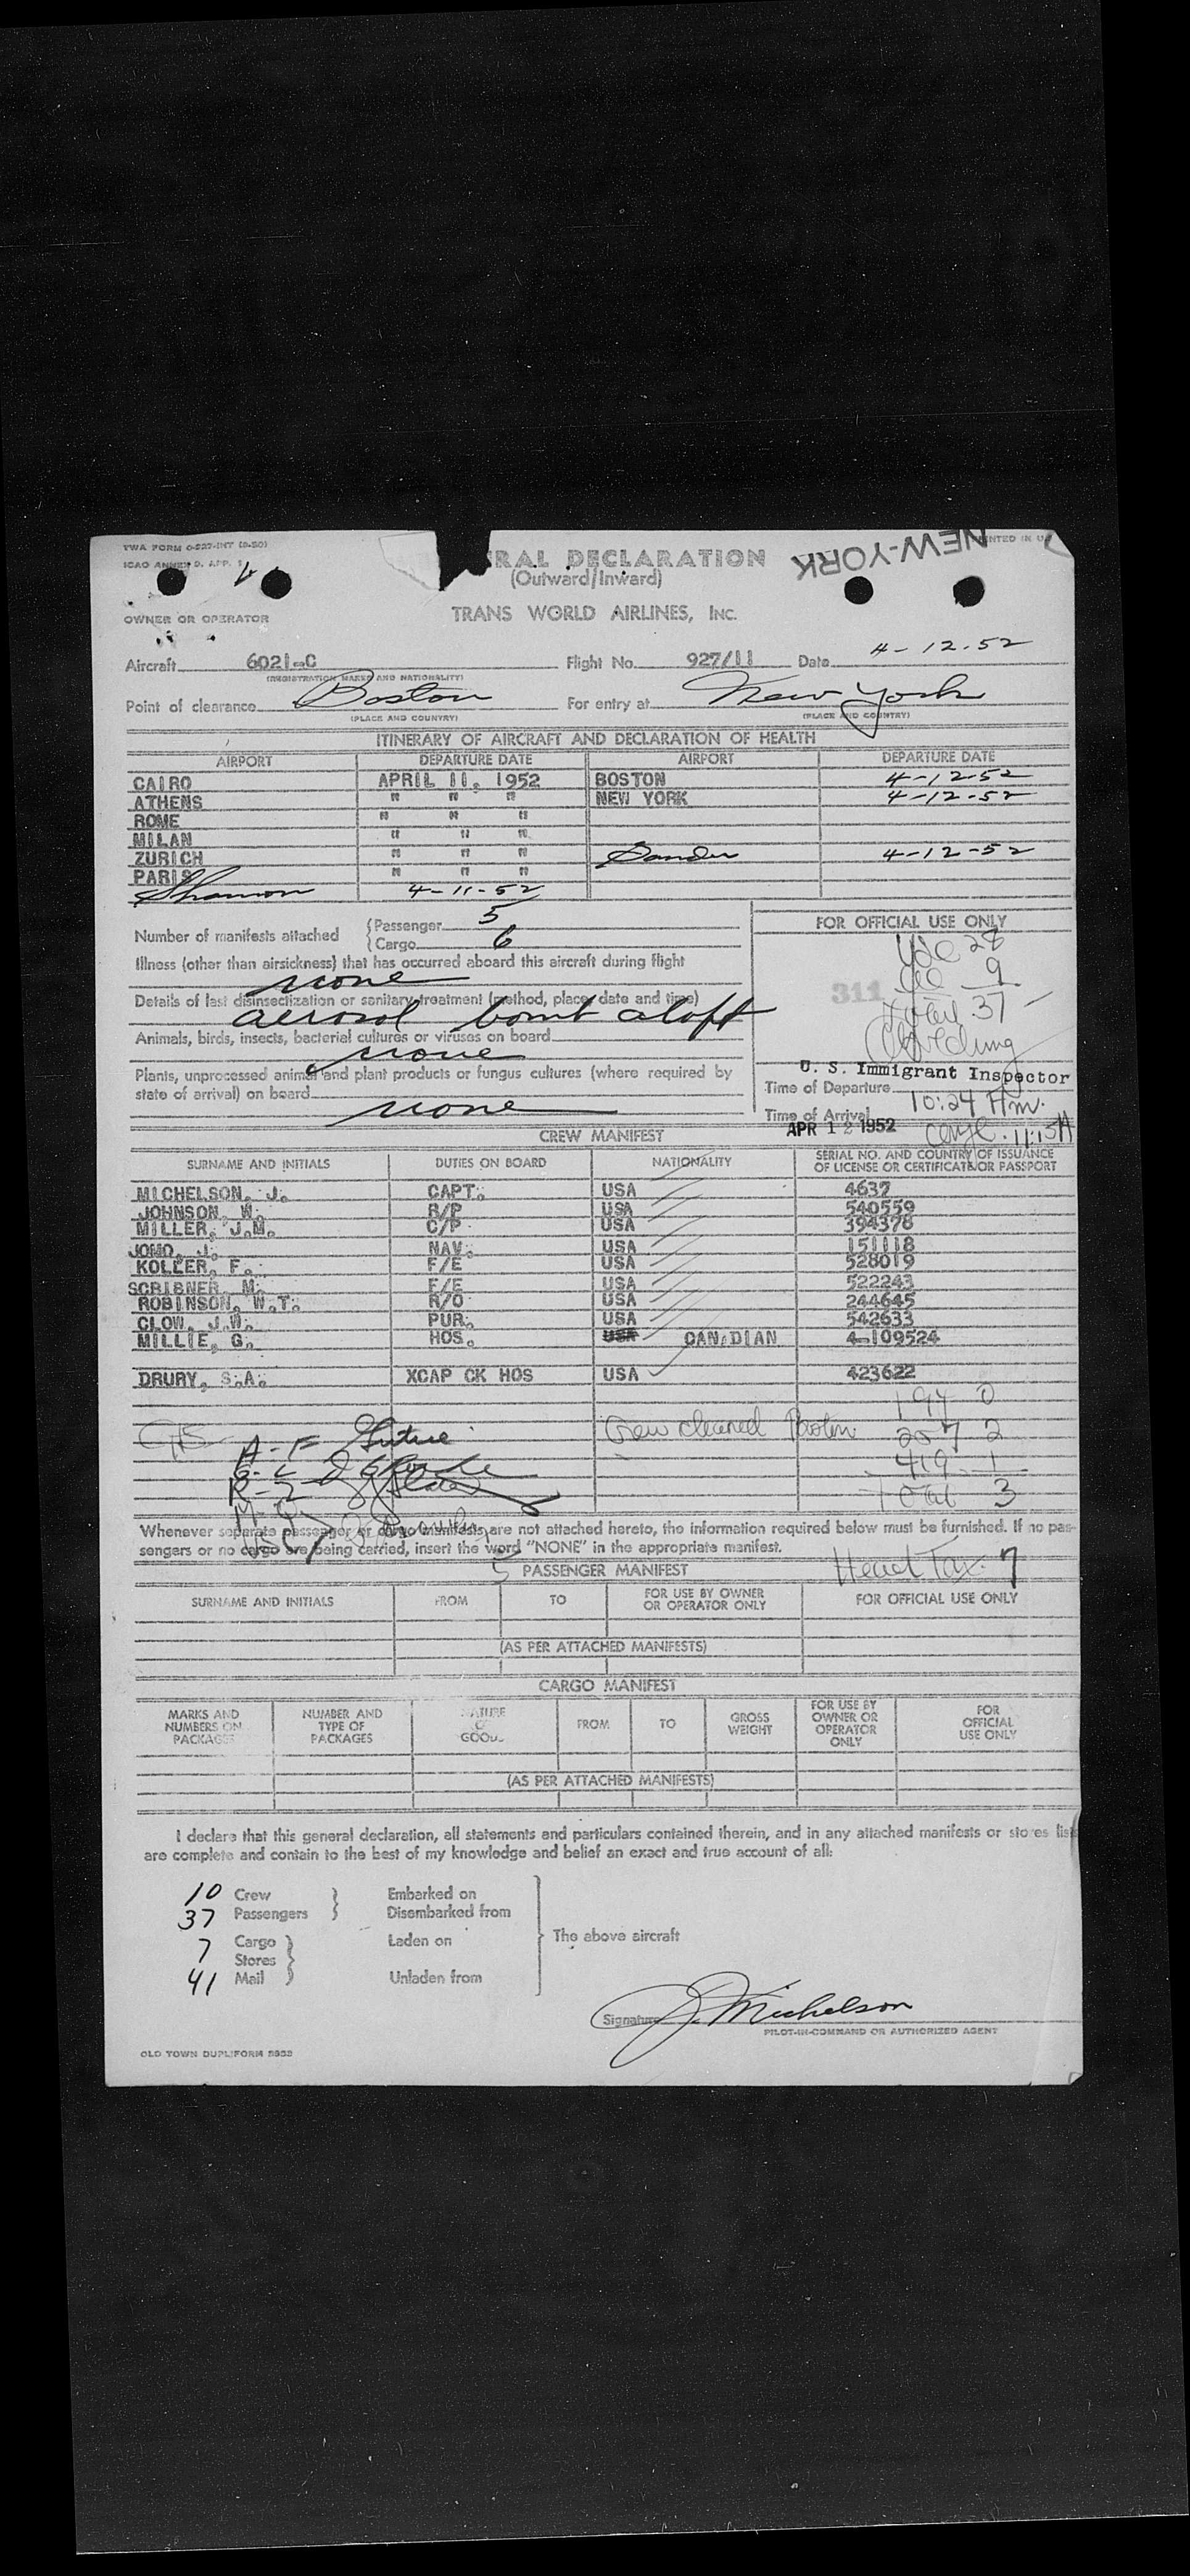 TWA FORM O-527-INT (9-50)
ICAO ANNEX 9. APP. 1
RAL DECLARATION
(Outward/Inward)
NEW-YORK
PRINTED IN U.
OWNER OR OPERATOR
TRANS WORLD AIRLINES, INC.
Aircraft 6021-C Flight No. 927/11 Date 4-12-52
(REGISTRATION MARKS AND NATIONALITY)
Point of clearance Boston For entry at New York
(PLACE AND COUNTRY) (PLACE AND COUNTRY)
ITINERARY OF AIRCRAFT AND DECLARATION OF HEALTH
AIRPORT DEPARTURE DATE AIRPORT DEPARTURE DATE
CAIRO APRIL 11, 1952 BOSTON 4-12-52
ATHENS " " " NEW YORK 4-12-52
ROME " " "
MILAN " " "
ZURICH " " " Gander 4-12-52
PARIS " " "
Shannon 4-11-52
Number of manifests attached {Passenger 5
{Cargo 6
FOR OFFICIAL USE ONLY
Illness (other than airsickness) that has occurred aboard this aircraft during flight
none
Details of last disinsectization or sanitary treatment (method, place, date and time)
aerosol bomb aloft
Animals, birds, insects, bacterial cultures or viruses on board
none
Plants, unprocessed animal and plant products or fungus cultures (where required by
state of arrival) on board
none
28
9
311
Total 37
U. S. Immigrant Inspector
Time of Departure 10:24 Am.
Time of Arrival
APR 12 1952
11:15A
CREW MANIFEST
SURNAME AND INITIALS DUTIES ON BOARD NATIONALITY SERIAL NO. AND COUNTRY OF ISSUANCE OF LICENSE OR CERTIFICATE OR PASSPORT
MICHELSON, J. CAPT. USA 4637
JOHNSON, W. R/P USA 540559
MILLER, J.M. C/P USA 394378
JOMO, J. NAV. USA 151118
KOLLER, F. F/E USA 528019
SCRIBNER, M. F/E USA 522243
ROBINSON, W.T. R/O USA 244645
CLOW, J.W. PUR. USA 542633
MILLIE, G. HOS. USA CANADIAN 4-109524
DRURY, S.A. XCAP CK HOS USA 423622
194 0
Crew cleared Boston 207 2
419 1
Total 3
Whenever separate passenger or cargo manifests are not attached hereto, the information required below must be furnished. If no pas-
sengers or no cargo are being carried, insert the word "NONE" in the appropriate manifest.
5 PASSENGER MANIFEST
Head Tax 7
SURNAME AND INITIALS FROM TO FOR USE BY OWNER OR OPERATOR ONLY FOR OFFICIAL USE ONLY
(AS PER ATTACHED MANIFESTS)
CARGO MANIFEST
MARKS AND NUMBERS ON PACKAGES NUMBER AND TYPE OF PACKAGES NATURE OF GOODS FROM TO GROSS WEIGHT FOR USE BY OWNER OR OPERATOR ONLY FOR OFFICIAL USE ONLY
(AS PER ATTACHED MANIFESTS)
I declare that this general declaration, all statements and particulars contained therein, and in any attached manifests or stores list
are complete and contain to the best of my knowledge and belief an exact and true account of all:
10 Crew Embarked on
37 Passengers Disembarked from
7 Cargo Laden on The above aircraft
Stores
41 Mail Unladen from
Signature J. Michelson
PILOT-IN-COMMAND OR AUTHORIZED AGENT
OLD TOWN DUPLIFORM